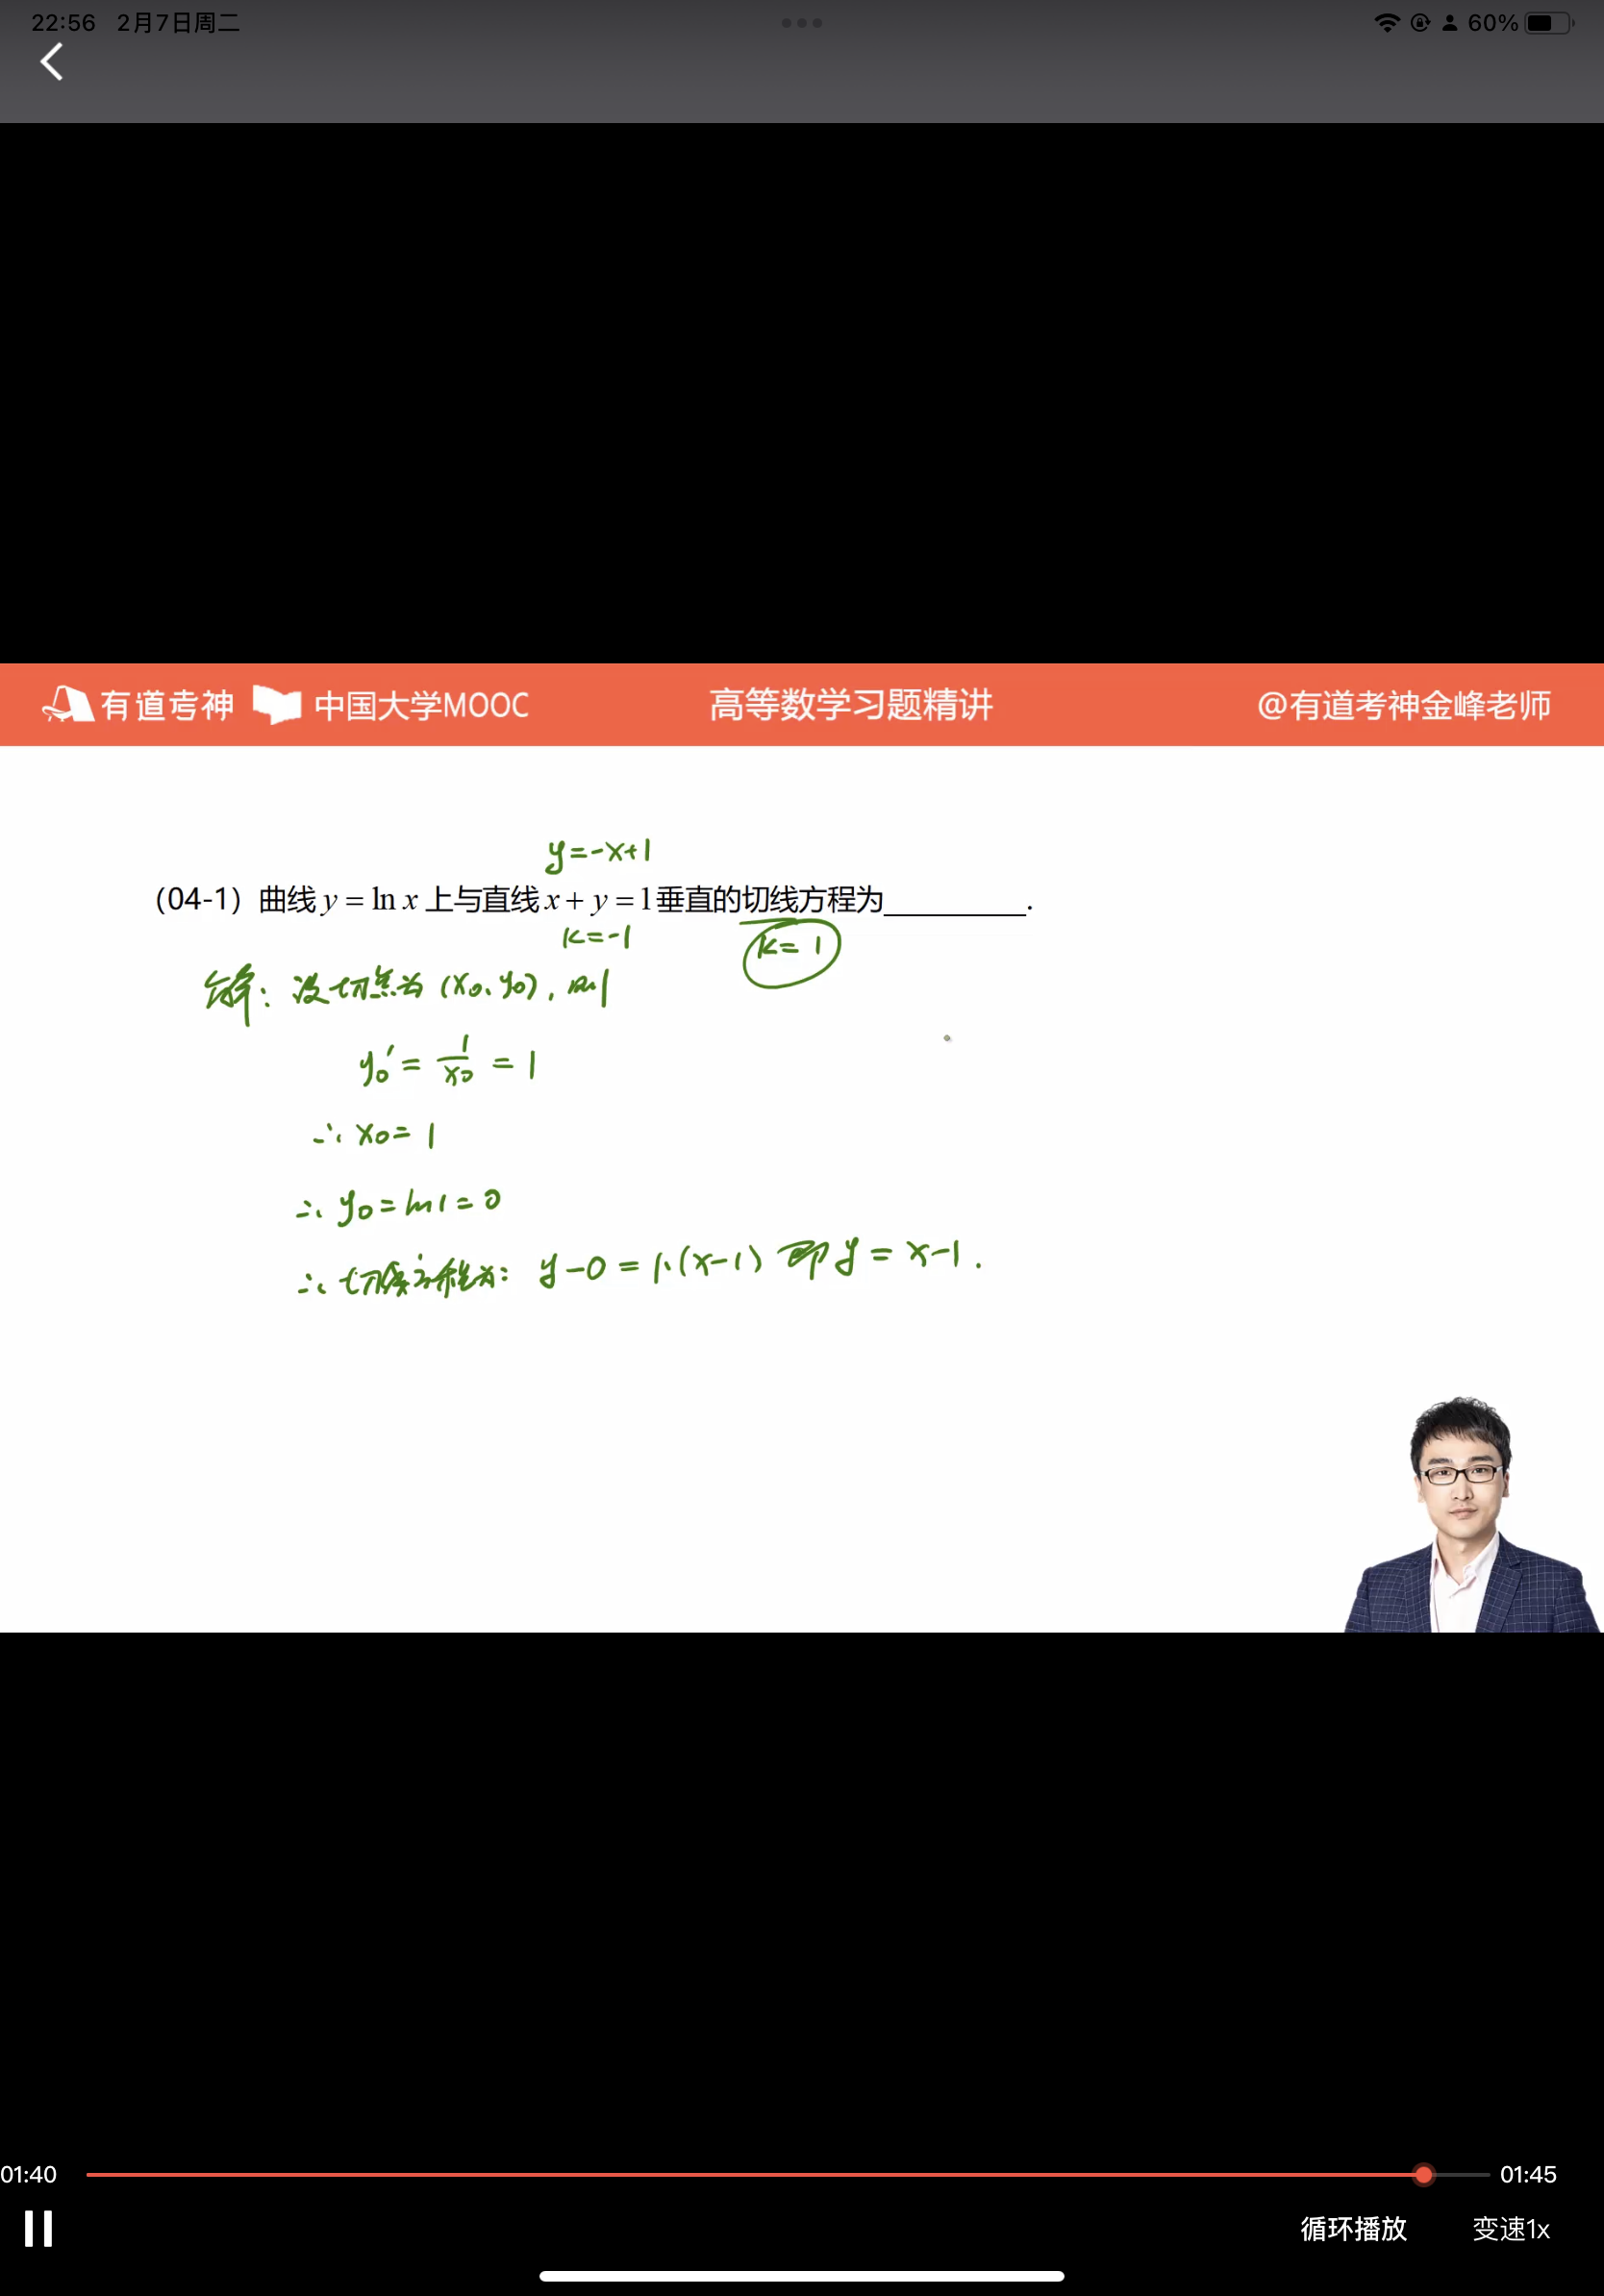 22:56 2月7日周二
60%
有道考神 中国大学MOOC 高等数学习题精讲 @有道考神金峰老师
y=-x+1
（04-1）曲线 y = ln x 上与直线 x + y = 1 垂直的切线方程为__________.
k=-1 k=1
解：设切点为 (x₀、y₀)，则
y₀′= 1/x₀ = 1
∴ x₀= 1
∴ y₀= ln1 = 0
∴ 切线方程为： y-0 = 1·(x-1) 即 y = x-1 .
01:40 01:45
循环播放 变速1x